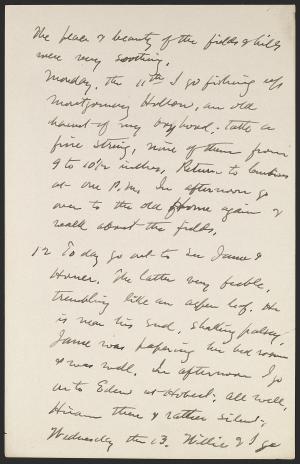 The peace & beauty of the fields & hills
were very soothing.
Monday, the 11th I go fishing up
Montgomery Hollow, an old
haunt of my boyhood; take a
fine string, nine of them from
9 to 10½ inches. Return to
at one P.m. In afternoon go
over to the old home again &
walk about the fields.
12 To day go out to see Jane &
Homer. The latter very feeble,
trembling like an aspen leaf. He
is near his end, shaking palsy.
Jane was papering her bed room
& was well. In afternoon I go
on to Eden at Hobart; all well,
Hiram there & rather silent;
Wednesday the 13. Willie & I go